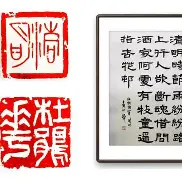 杜鵑花
清明時節雨紛紛路
上行人欲斷魂借問
酒家何處有牧童遙
指杏花邨